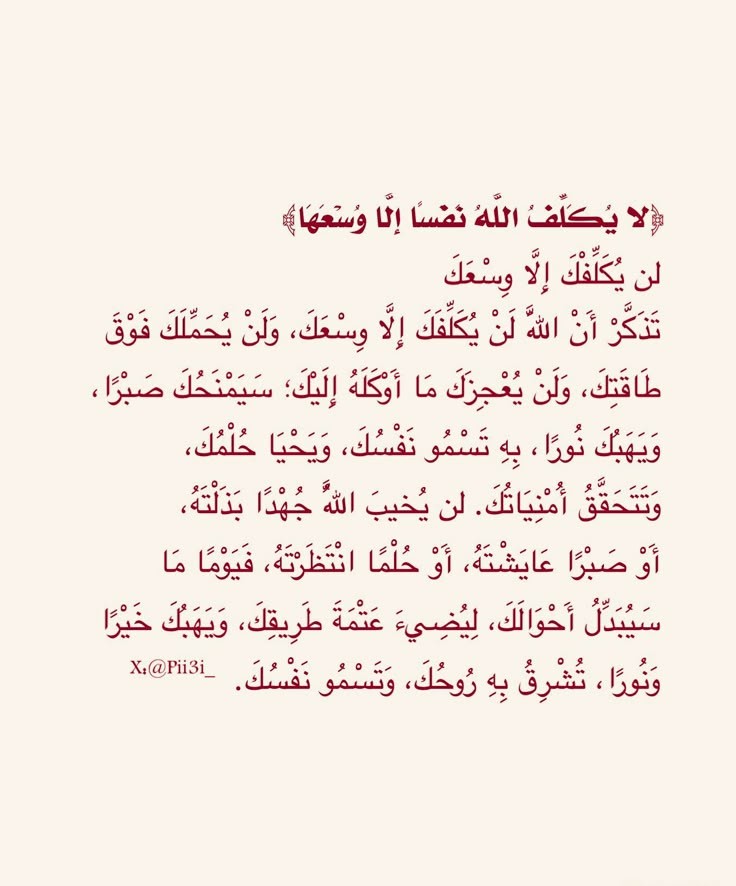 ﴿لا يُكَلِّفُ اللَّهُ نَفْسًا إلَّا وُسْعَهَا﴾
لن يُكَلِّفْكَ إِلَّا وِسْعَكَ
تَذَكَّرْ أَنْ اللهَّ لَنْ يُكَلِّفَكَ إِلَّا وِسْعَكَ، وَلَنْ يُحَمِّلَكَ فَوْقَ
طَاقَتِكَ، وَلَنْ يُعْجِزَكَ مَا أَوْكَلَهُ إِلَيْكَ؛ سَيَمْنَحُكَ صَبْرًا،
وَيَهَبُكَ نُورًا، بِهِ تَسْمُو نَفْسُكَ، وَيَحْيَا حُلْمُكَ،
وَتَتَحَقَّقُ أُمْنِيَاتُكَ. لن يُخيبَ اللهُّ جُهْدًا بَذَلْتَهُ،
أَوْ صَبْرًا عَايَشْتَهُ، أَوْ حُلْمًا انْتَظَرْتَهُ، فَيَوْمًا مَا
سَيُبَدِّلُ أَحْوَالَكَ، لِيُضِيءَ عَتْمَةَ طَرِيقِكَ، وَيَهَبُكَ خَيْرًا
وَنُورًا، تُشْرِقُ بِهِ رُوحُكَ، وَتَسْمُو نَفْسُكَ. X:@Pii3i_